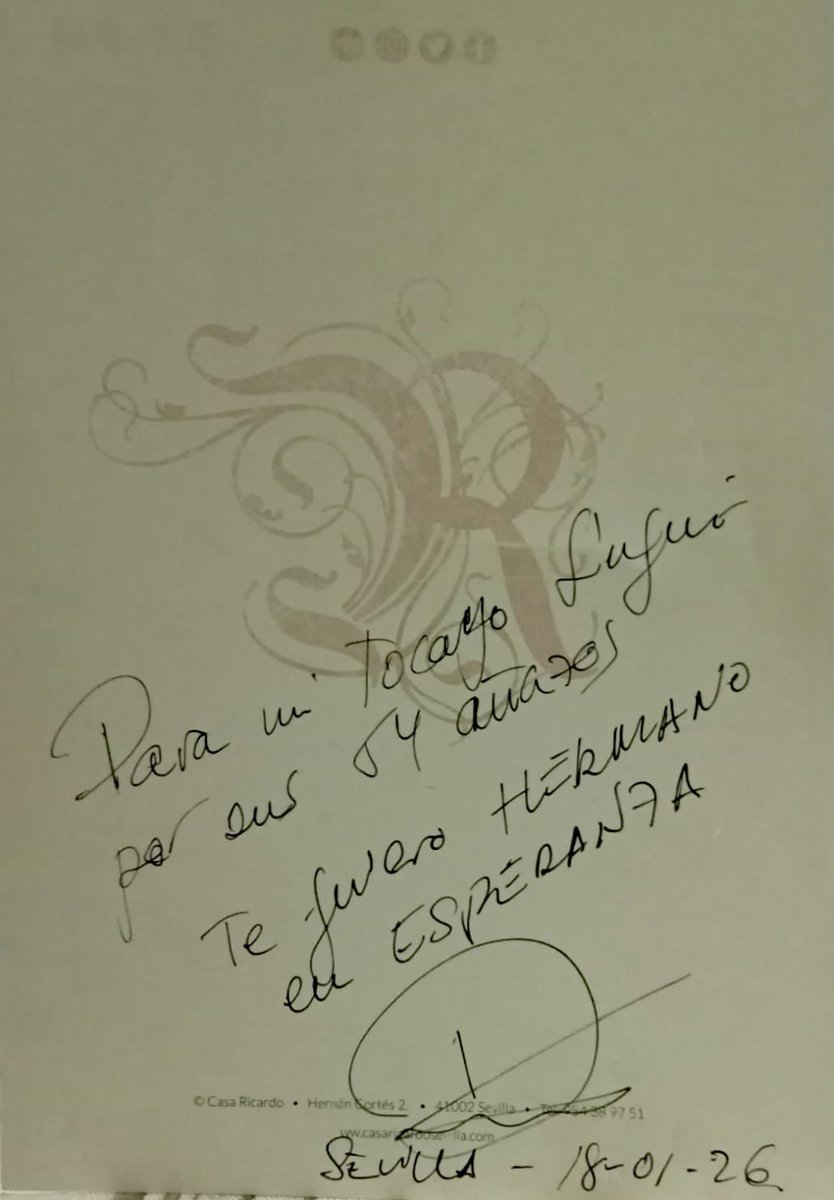 R
Para mi Tocayo
por sus 54 añazos
Te quiero HERMANO
en ESPERANZA
© Casa Ricardo • Hernán Cortés 2 • 41002 Sevilla • Tel. 954 38 97 51
www.casaricardosevilla.com
SEVILLA - 18-01-26